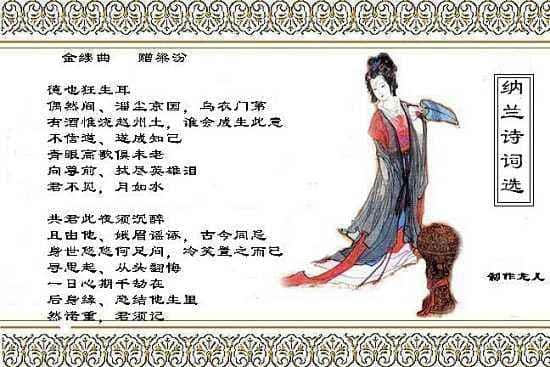 金缕曲 赠梁汾
德也狂生耳
偶然间、淄尘京国，乌衣门第
有酒惟浇赵州土，谁会成生此意
不信道、遂成知己
青眼高歌俱未老
向尊前、拭尽英雄泪
君不见，月如水
共君此夜须沉醉
且由他、娥眉谣诼，古今同忌
身世悠悠何足问，冷笑置之而已
寻思起、从头翻悔
一日心期千劫在
后身缘、恐结他生里
然诺重，君须记
纳兰诗词选
制作龙人